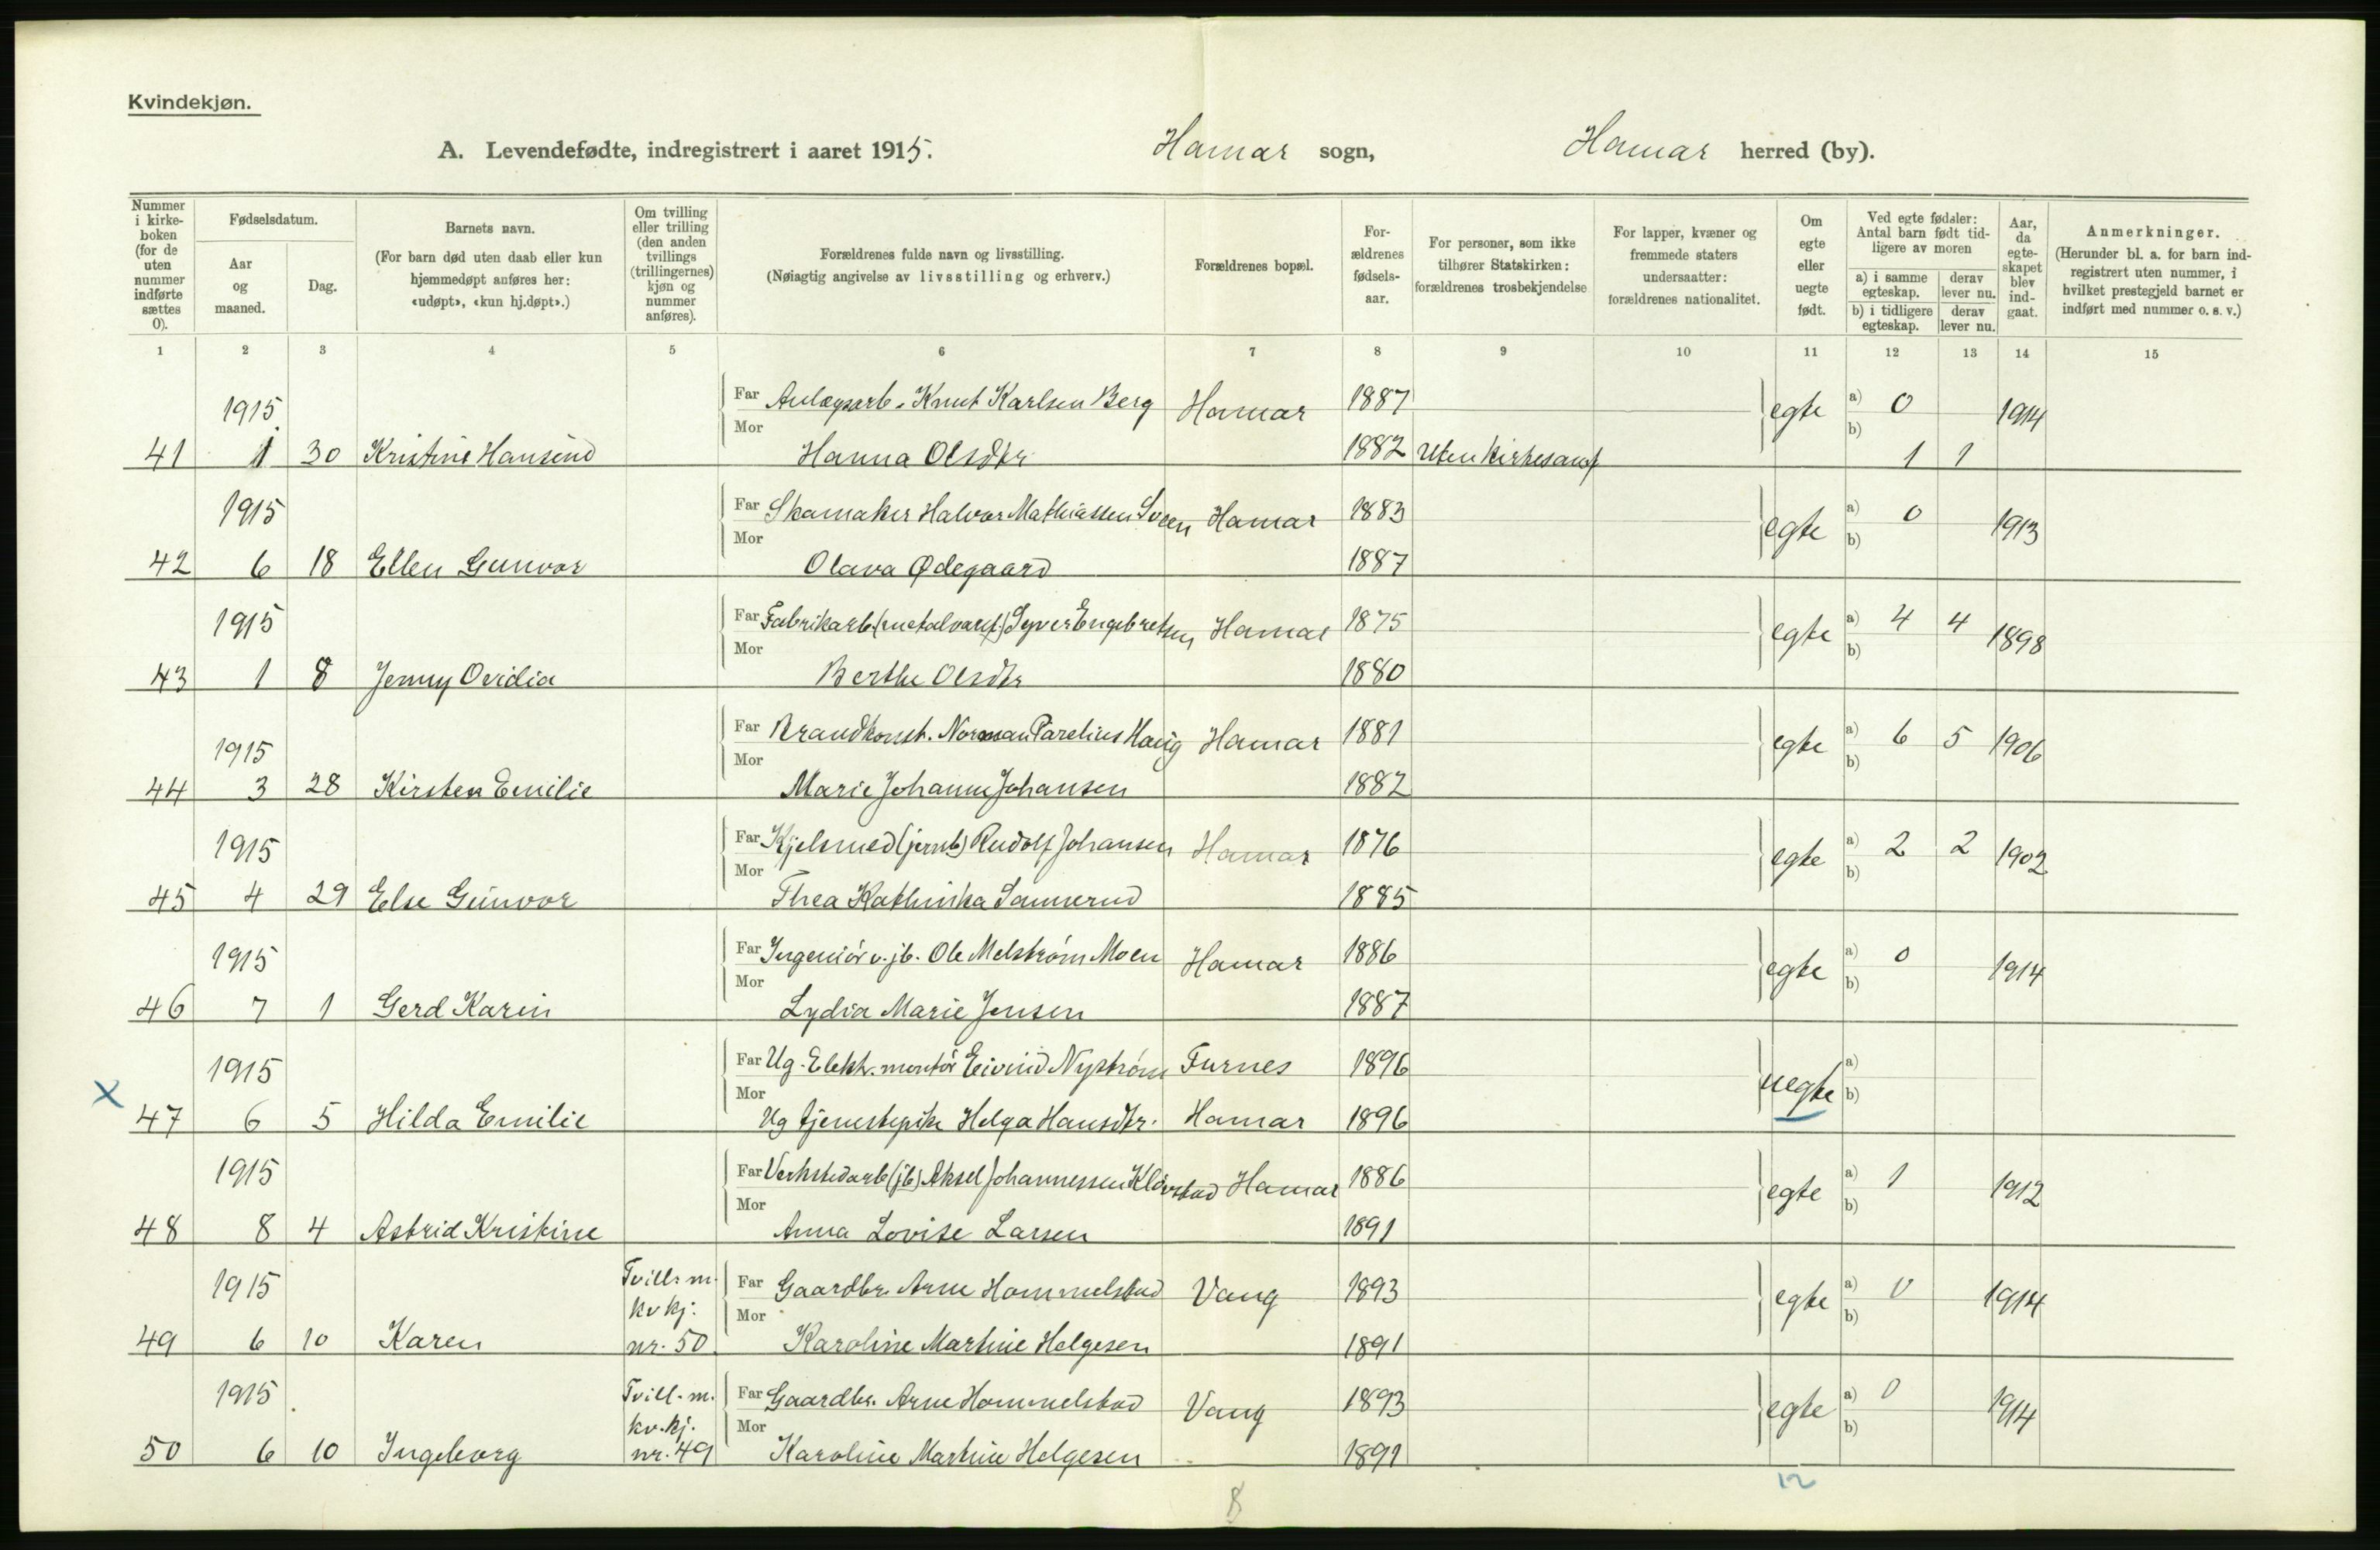 Kvindekjøn.
A. Levendefødte, indregistrert i aaret 1915. Hamar sogn, Hamar herred (by).
Nummer i kirke- boken (for de uten nummer indførte sættes 0).
Fødselsdatum.
Aar og maaned.
Dag.
Barnets navn.
(For barn død uten daab eller kun hjemmedøpt anføres her: «udøpt», «kun hj.døpt».)
Om tvilling eller trilling (den anden tvillings (trillingernes) kjøn og nummer anføres).
Forældrenes fulde navn og livsstilling.
(Nøiagtig angivelse av livsstilling og erhverv.)
Forældrenes bopæl.
For- ældrenes fødsels- aar.
For personer, som ikke tilhører Statskirken: forældrenes trosbekjendelse
For lapper, kvæner og fremmede staters undersaatter: forældrenes nationalitet.
Om egte eller uegte født.
Ved egte fødsler: Antal barn født tid- ligere av moren
a) i samme egteskap.
derav lever nu.
b) i tidligere egteskap.
derav lever nu.
Aar, da egte- skapet blev ind- gaat.
Anmerkninger.
(Herunder bl. a. for barn ind- registrert uten nummer, i hvilket prestegjeld barnet er indført med nummer o. s. v.)
1 2 3 4 5 6 7 8 9 10 11 12 13 14 15
1915 Far Anlægsarb. Knut Karlsen Berg Hamar 1887 egte a) 0 1914
41 1 30 Kristine Mor Hanna Olsdtr 1882 Uten kirkesamf b) 1 1
1915 Far Skomaker Halvor Mathiassen Sveen Hamar 1883 egte a) 0 1913
42 6 18 Ellen Gunvor Mor Olava Ødegaard 1887 b)
1915 Far Fabrikarb. (metalvaref.) Syver Engebretsen Hamar 1875 egte a) 4 4 1898
43 1 8 Jenny Ovidia Mor Berthe Olsdtr 1880 b)
1915 Far Brandkonst. Norman Parelius Haug Hamar 1881 egte a) 6 5 1906
44 3 28 Kirsten Emilie Mor Marie Johanne Johansen 1882 b)
1915 Far Kjelsmed (jernb) Rudolf Johansen Hamar 1876 egte a) 2 2 1902
45 4 29 Else Gunvor Mor Thea Kathinka 1885 b)
1915 Far Ingeniør v. jb. Ole Melstrøm Moen Hamar 1886 egte a) 0 1914
46 7 1 Gerd Karin Mor Lydia Marie Jensen 1887 b)
1915 Far Ug. Elektr. montør Eivind Nystrøm Furnes 1896 uegte a)
x 47 6 5 Hilda Emilie Mor Ug tjenestepike Helga Hansdtr. Hamar 1896 b)
1915 Far Verkstedarb (jb) Aksel Johannessen Kløvstad Hamar 1886 egte a) 1 1912
48 8 4 Astrid Kristine Mor Anna Lovise Larsen 1891 b)
1915 Tvill. m. kv kj. Far Gaardbr. Arne Hommelstad Vang 1893 egte a) 0 1914
49 6 10 Karen nr. 50 Mor Karoline Martine Helgesen 1891 b)
1915 Tvill. m. kv. kj. Far Gaardbr. Arne Hommelstad Vang 1893 egte a) 0 1914
50 6 10 Ingeborg nr. 49 Mor Karoline Martine Helgesen 1891 b)
8 12